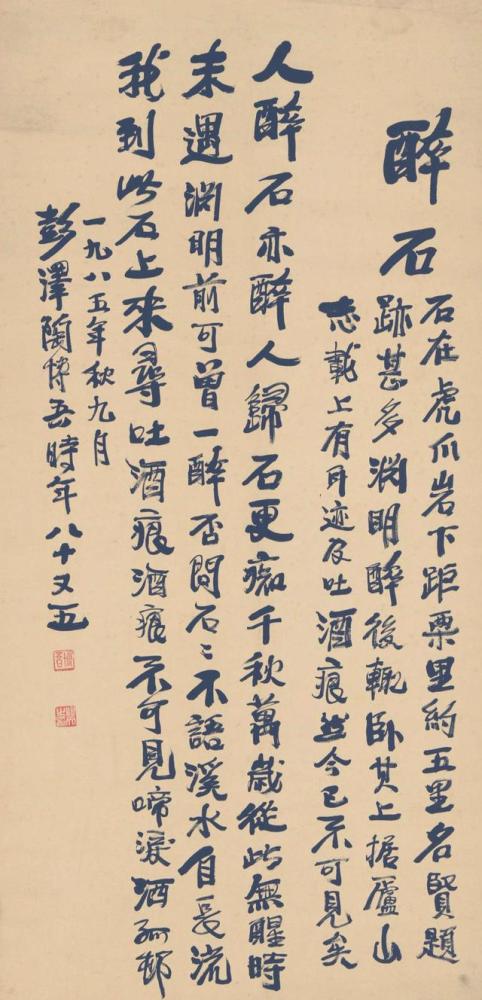 醉石
石在虎爪岩下距栗里約五里名賢題
跡甚多渊明醉後輒臥其上据廬山
志載上有耳迹及吐酒痕然今已不可見矣
人醉石亦醉人歸石更痴千秋萬歲從此無醒時
未遇渊明前可曾一醉否問石〻不語溪水自長流
我到此石上來尋吐酒痕酒痕不可見啼淚洒孤邨
一九八五年秋九月
彭澤陶博吾時年八十又五